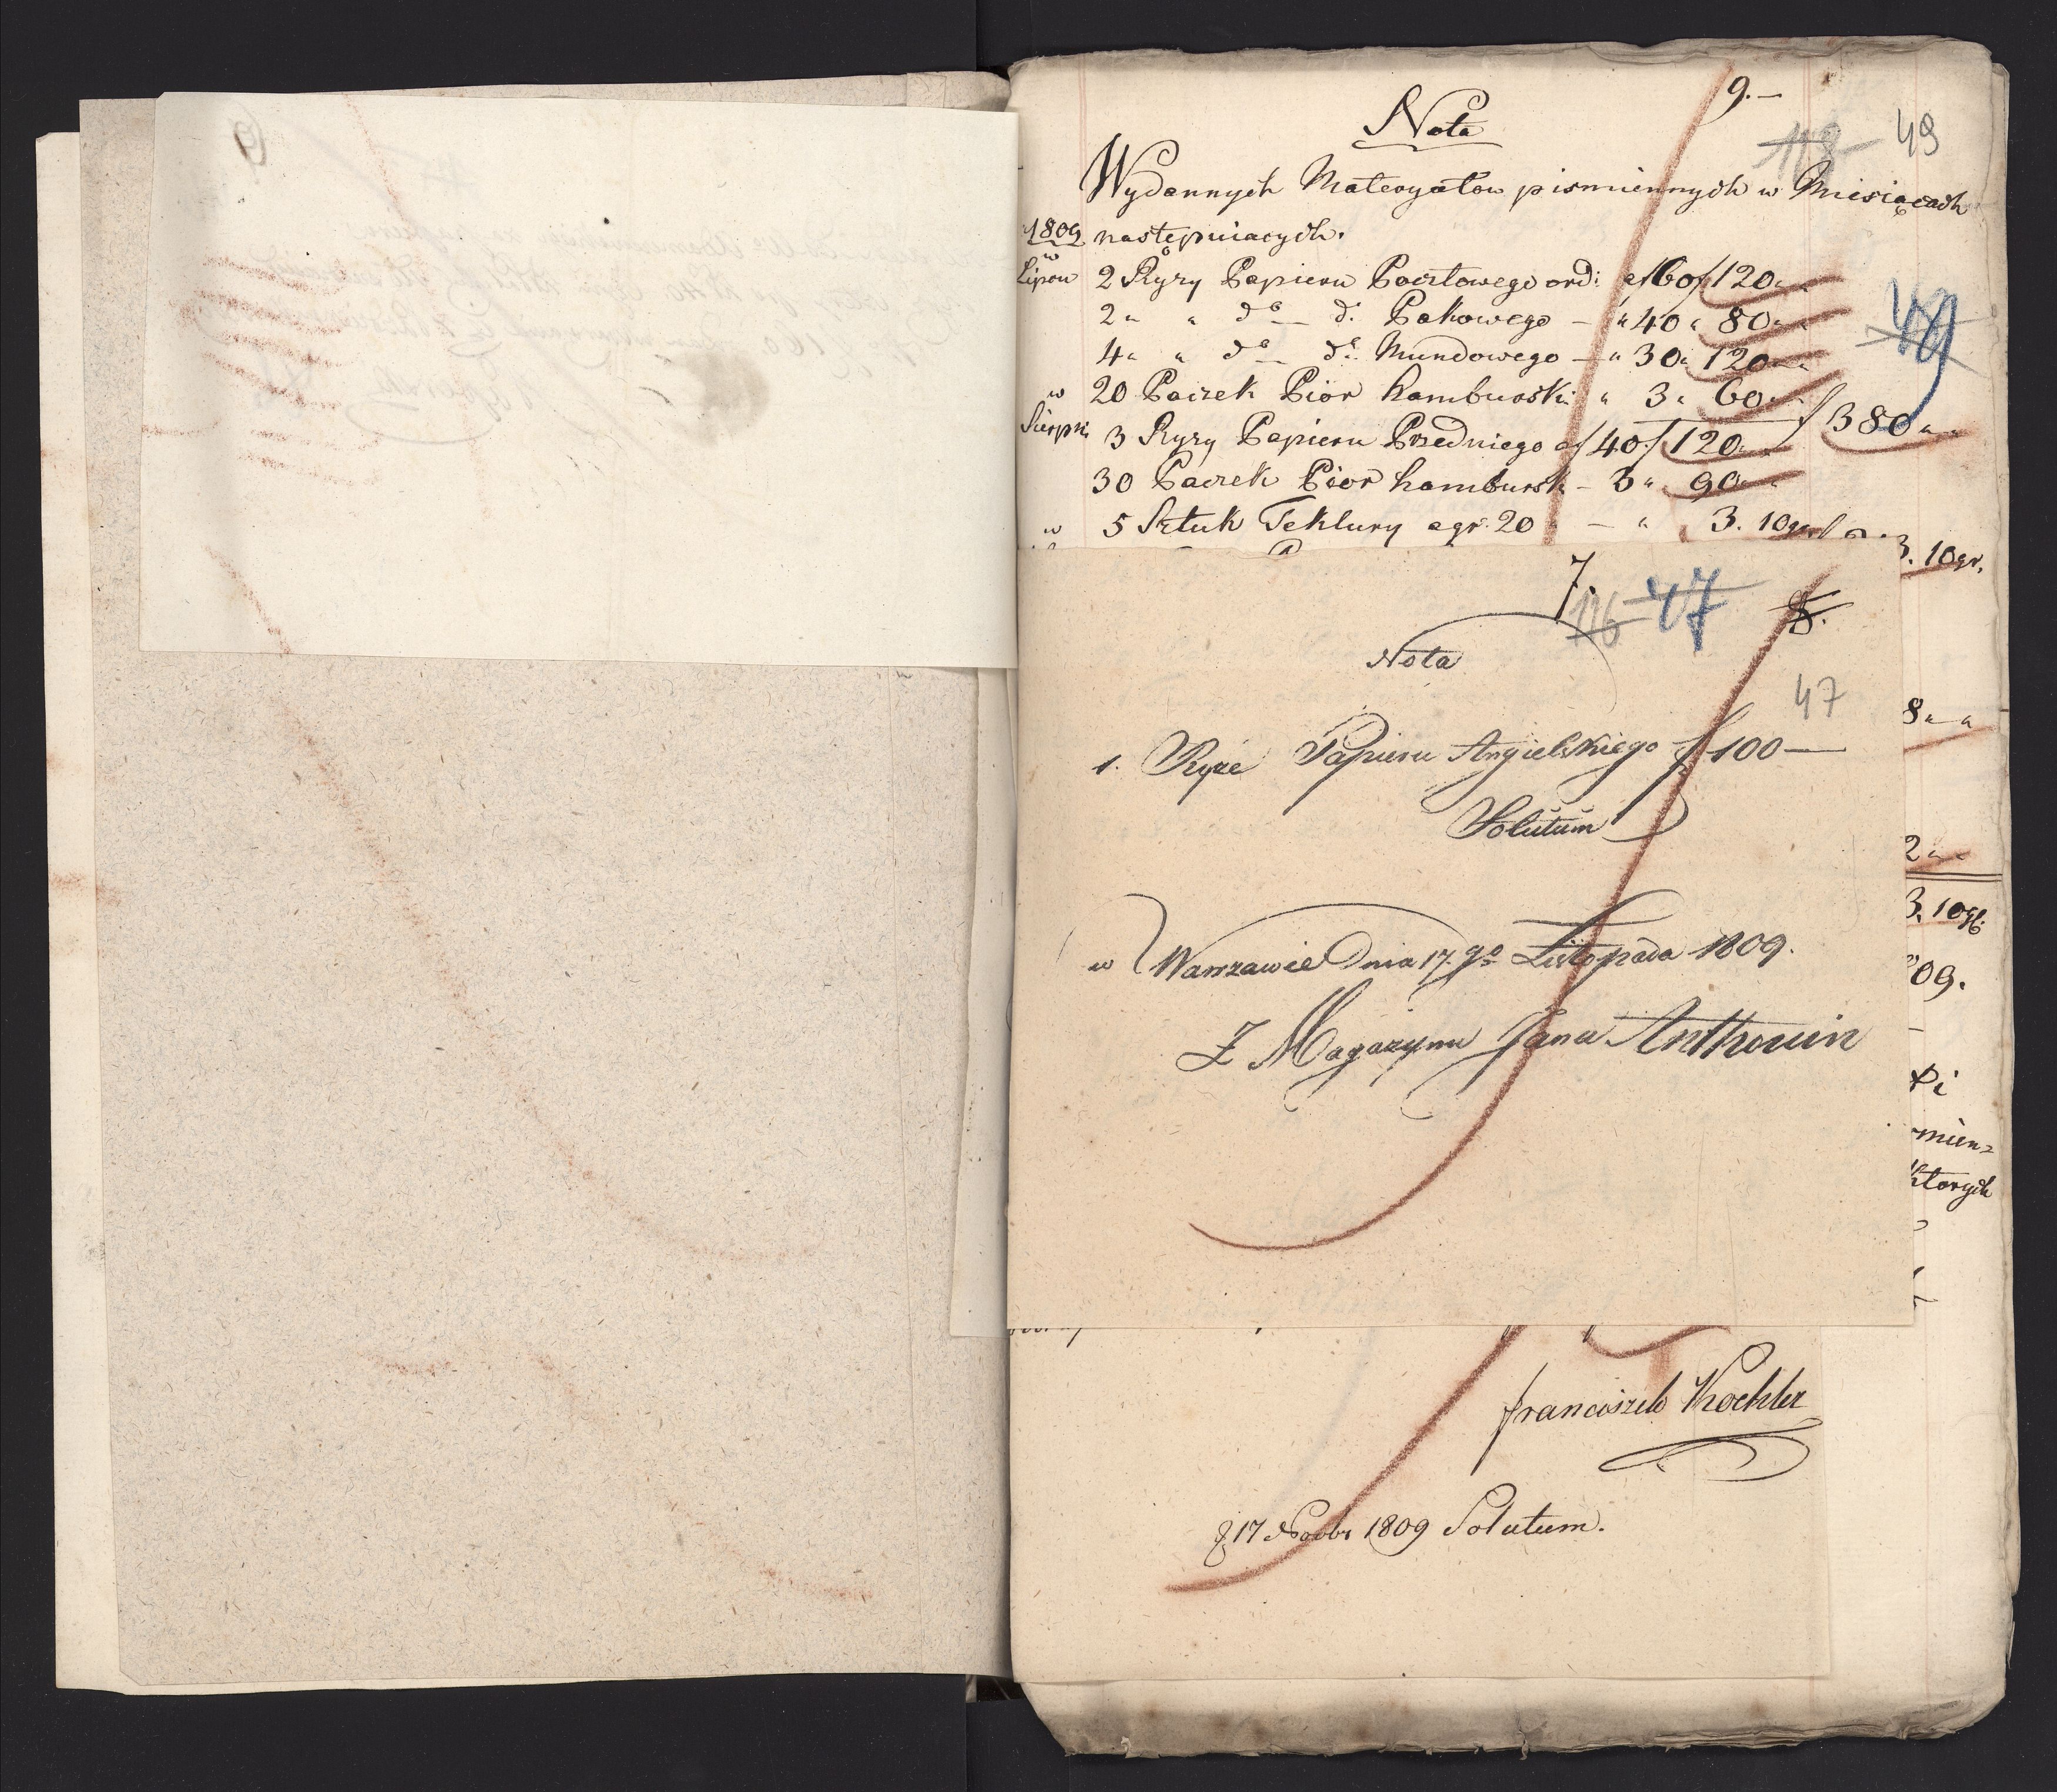 9.—
Nota
118 49
Wydannych Materyałow pismiennych w Miesiącach
1809 następuiących.
49
w Lipcu 2 Ryzy Papieru Pocztowego ord: a f 60 f 120 " "
2 " " do — do Pakowego — " 40 " 80 " "
4 " " do — do Mundowego — " 30 " 120 " "
20 Paczek Pior hamburski " 3 " 60 " " f 380 " "
w Sierpni 3 Ryzy Papieru Przedniego a f 40 f 120 " "
30 Paczek Pior hambursk — 3 " 90 " "
w 5 Sztuk Tektury a gr. 20 — " 3. 10 gr
3. 10 gr.
7. 116 47 8.
Nota
47
8 " "
1. Ryze Papieru Angielskiego f 100 —
Solutum
2 " "
3. 10 gr.
w Warszawie Dnia 17.go Listopada 1809.
09.
Z Magazynu Jana Anthonin
mien=
ktorych
franciszek Kochler
d 17 Novbr 1809 Solutum.